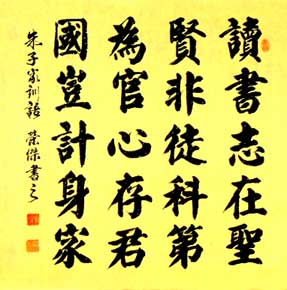 讀書志在聖
賢非徒科第
為官心存君
國豈計身家
朱子家訓語 榮傑書之